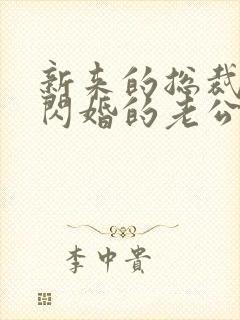 新来的总裁
闪婚的老公
李中貴